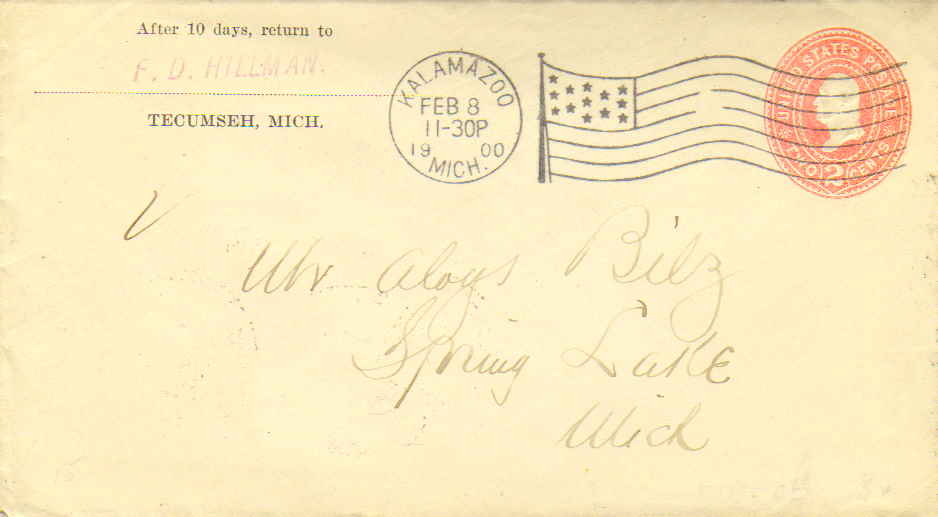 After 10 days, return to
F. D. HILLMAN.
TECUMSEH, MICH.
KALAMAZOO
FEB 8
11-30P
19 00
MICH.
UNITED STATES POSTAGE
TWO 2 CENTS
Mr Aloys Bilz
Spring Lake
Mich